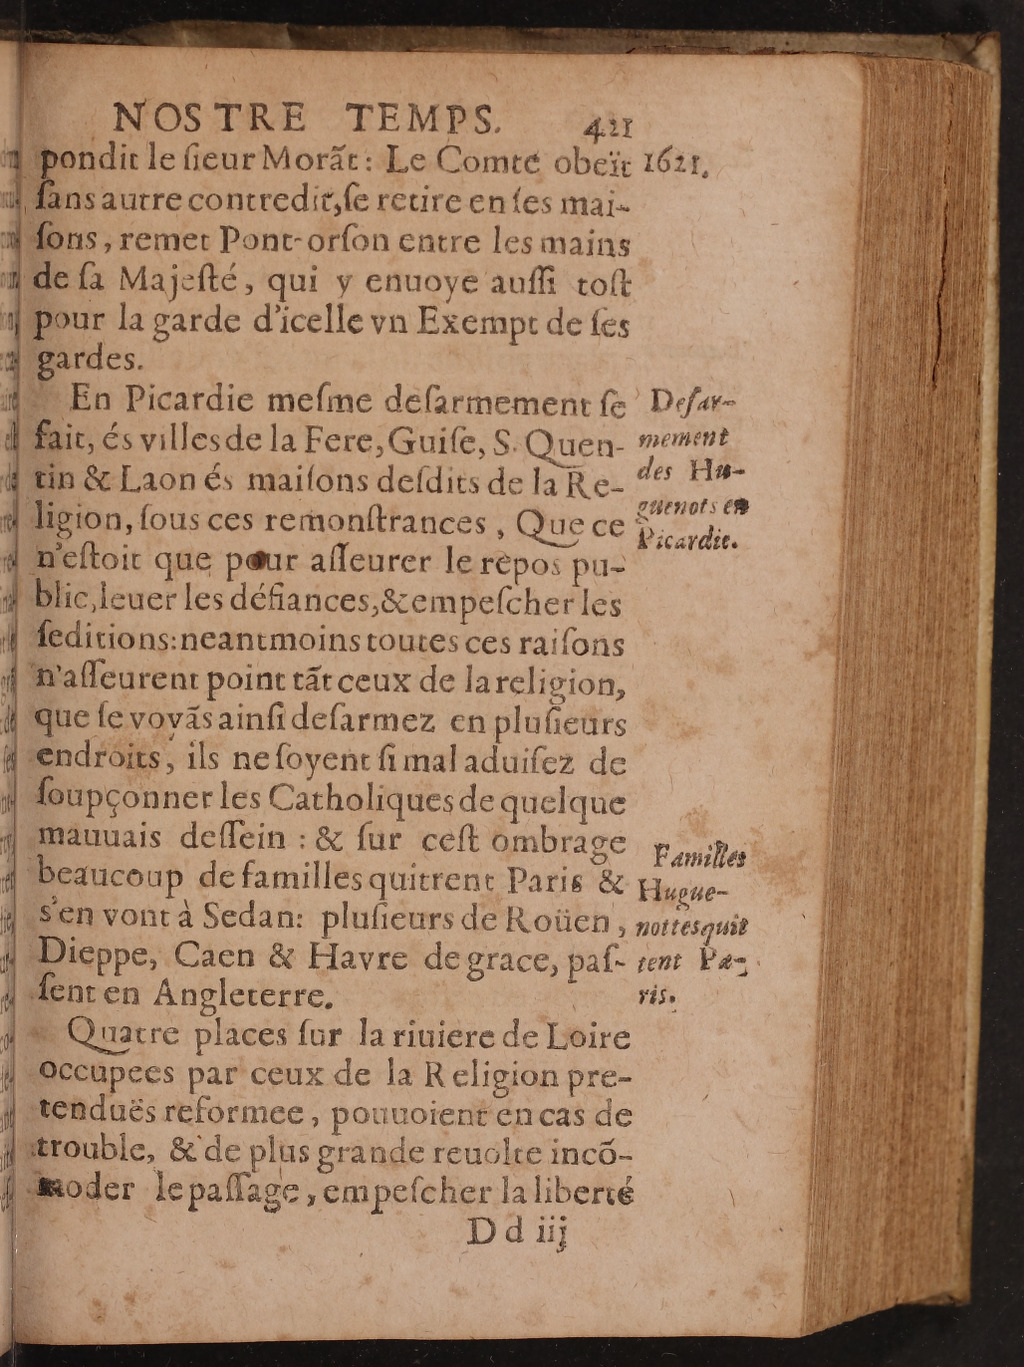 NOSTRE TEMPS. 421
pondit le ſieur Morãt: Le Comte obeït 1621.
ſans autre contredit, ſe retire en ſes mai-
ſons, remet Pont-orſon entre les mains
de ſa Majeſté, qui y enuoye auſſi toſt
pour la garde d'icelle vn Exempt de ſes
gardes.
En Picardie meſme deſarmement ſe
fait, és villes de la Fere, Guiſe, S. Quen-
tin & Laon és maiſons deſdits de la Re-
ligion, ſous ces remonſtrances, Que ce
n'eſtoit que pour aſſeurer le repos pu-
blic, leuer les défiances, & empeſcher les
ſeditions: neantmoins toutes ces raiſons
n'aſſeurent point tãt ceux de la religion,
que ſe voyãs ainſi deſarmez en pluſieurs
endroits, ils ne ſoyent ſi mal aduiſez de
ſoupçonner les Catholiques de quelque
mauuais deſſein : & ſur ceſt ombrage
beaucoup de familles quittent Paris &
s'en vont à Sedan: pluſieurs de Roüen,
Dieppe, Caen & Havre de grace, paſ-
ſent en Angleterre.
Quatre places ſur la riuiere de Loire
occupees par ceux de la Religion pre-
tenduës reformee, pouuoient en cas de
trouble, & de plus grande reuolte incõ-
moder le paſſage, empeſcher la liberté
D d iij
Deſar-
mement
des Hu-
guenots en
Picardie.
Familles
Hugue-
nottes quit
tent Pa-
ris.